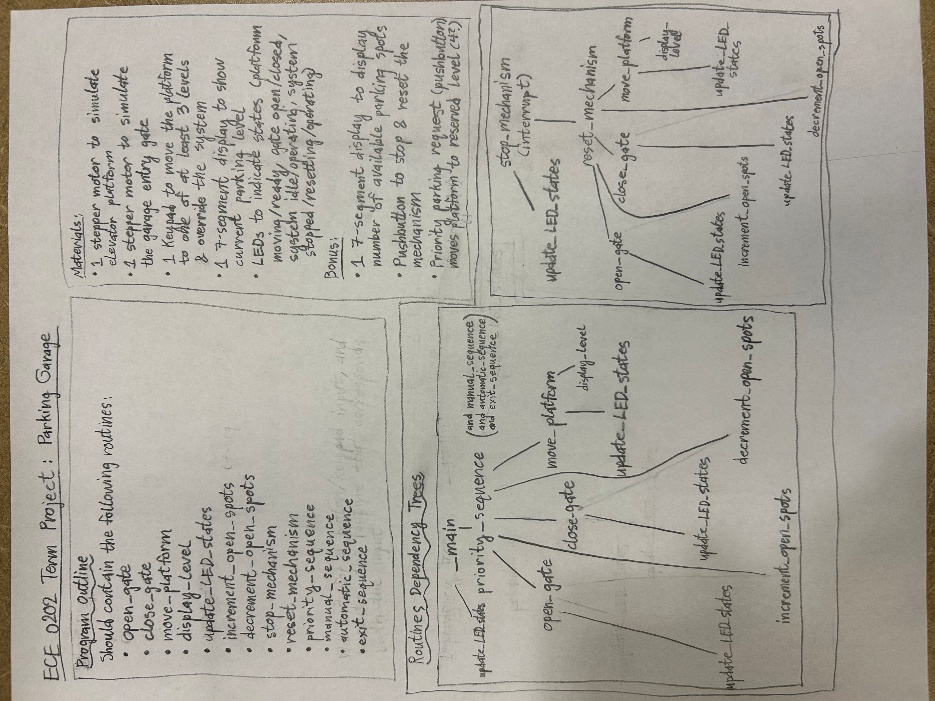 ECE 0202 Term Project : Parking Garage
Program Outline
Should contain the following routines:
• open_gate
• close_gate
• move_platform
• display_level
• update_LED_states
• increment_open_spots
• decrement_open_spots
• stop_mechanism
• reset_mechanism
• priority_sequence
• manual_sequence
• automatic_sequence
• exit_sequence
Materials:
• 1 stepper motor to simulate
elevator platform
• 1 stepper motor to simulate
the garage entry gate
• 1 Keypad to move the platform
to one of at least 3 levels
& override the system
• 1 7-segment display to show
current parking level
• LEDs to indicate states (platform
moving/ready, gate open/closed,
system idle/operating, system
stopped/resetting/operating)
Bonus:
• 1 7-segment display to display
number of available parking spots
• Pushbutton to stop & reset the
mechanism
• Priority parking request (pushbutton)
moves platform to reserved level (4?)
Routines Dependency Trees
__main
update_LED_states
priority_sequence
(and manual_sequence
and automatic_sequence
and exit_sequence)
open_gate
close_gate
move_platform
display_level
update_LED_states
update_LED_states
update_LED_states
decrement_open_spots
increment_open_spots
stop_mechanism
(interrupt)
update_LED_states
reset_mechanism
open_gate
close_gate
move_platform
display_level
update_LED_states
update_LED_states
increment_open_spots
update_LED_states
decrement_open_spots